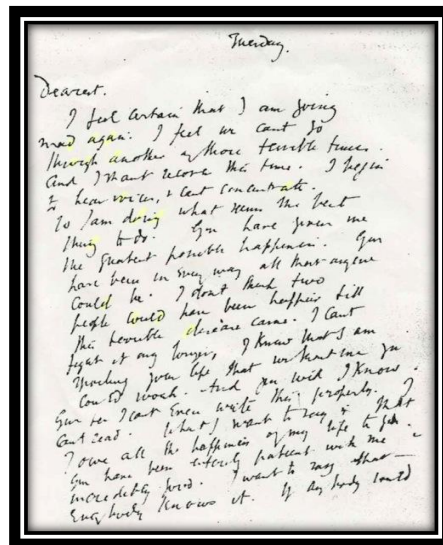 Tuesday.
Dearest.
I feel certain that I am going
mad again: I feel we cant go
through another of those terrible times.
And I shant recover this time. I begin
to hear voices, & cant concentrate.
So I am doing what seems the best
thing to do. You have given me
the greatest possible happiness. You
have been in every way all that anyone
could be. I dont think two
people could have been happier till
this terrible disease came. I cant
fight it any longer, I know that I am
spoiling your life, that without me you
could work. And you will I know.
You see I cant even write this properly. I
cant read. What I want to say is that
I owe all the happiness of my life to you.
You have been entirely patient with me &
incredibly good. I want to say that —
everybody knows it. If anybody could